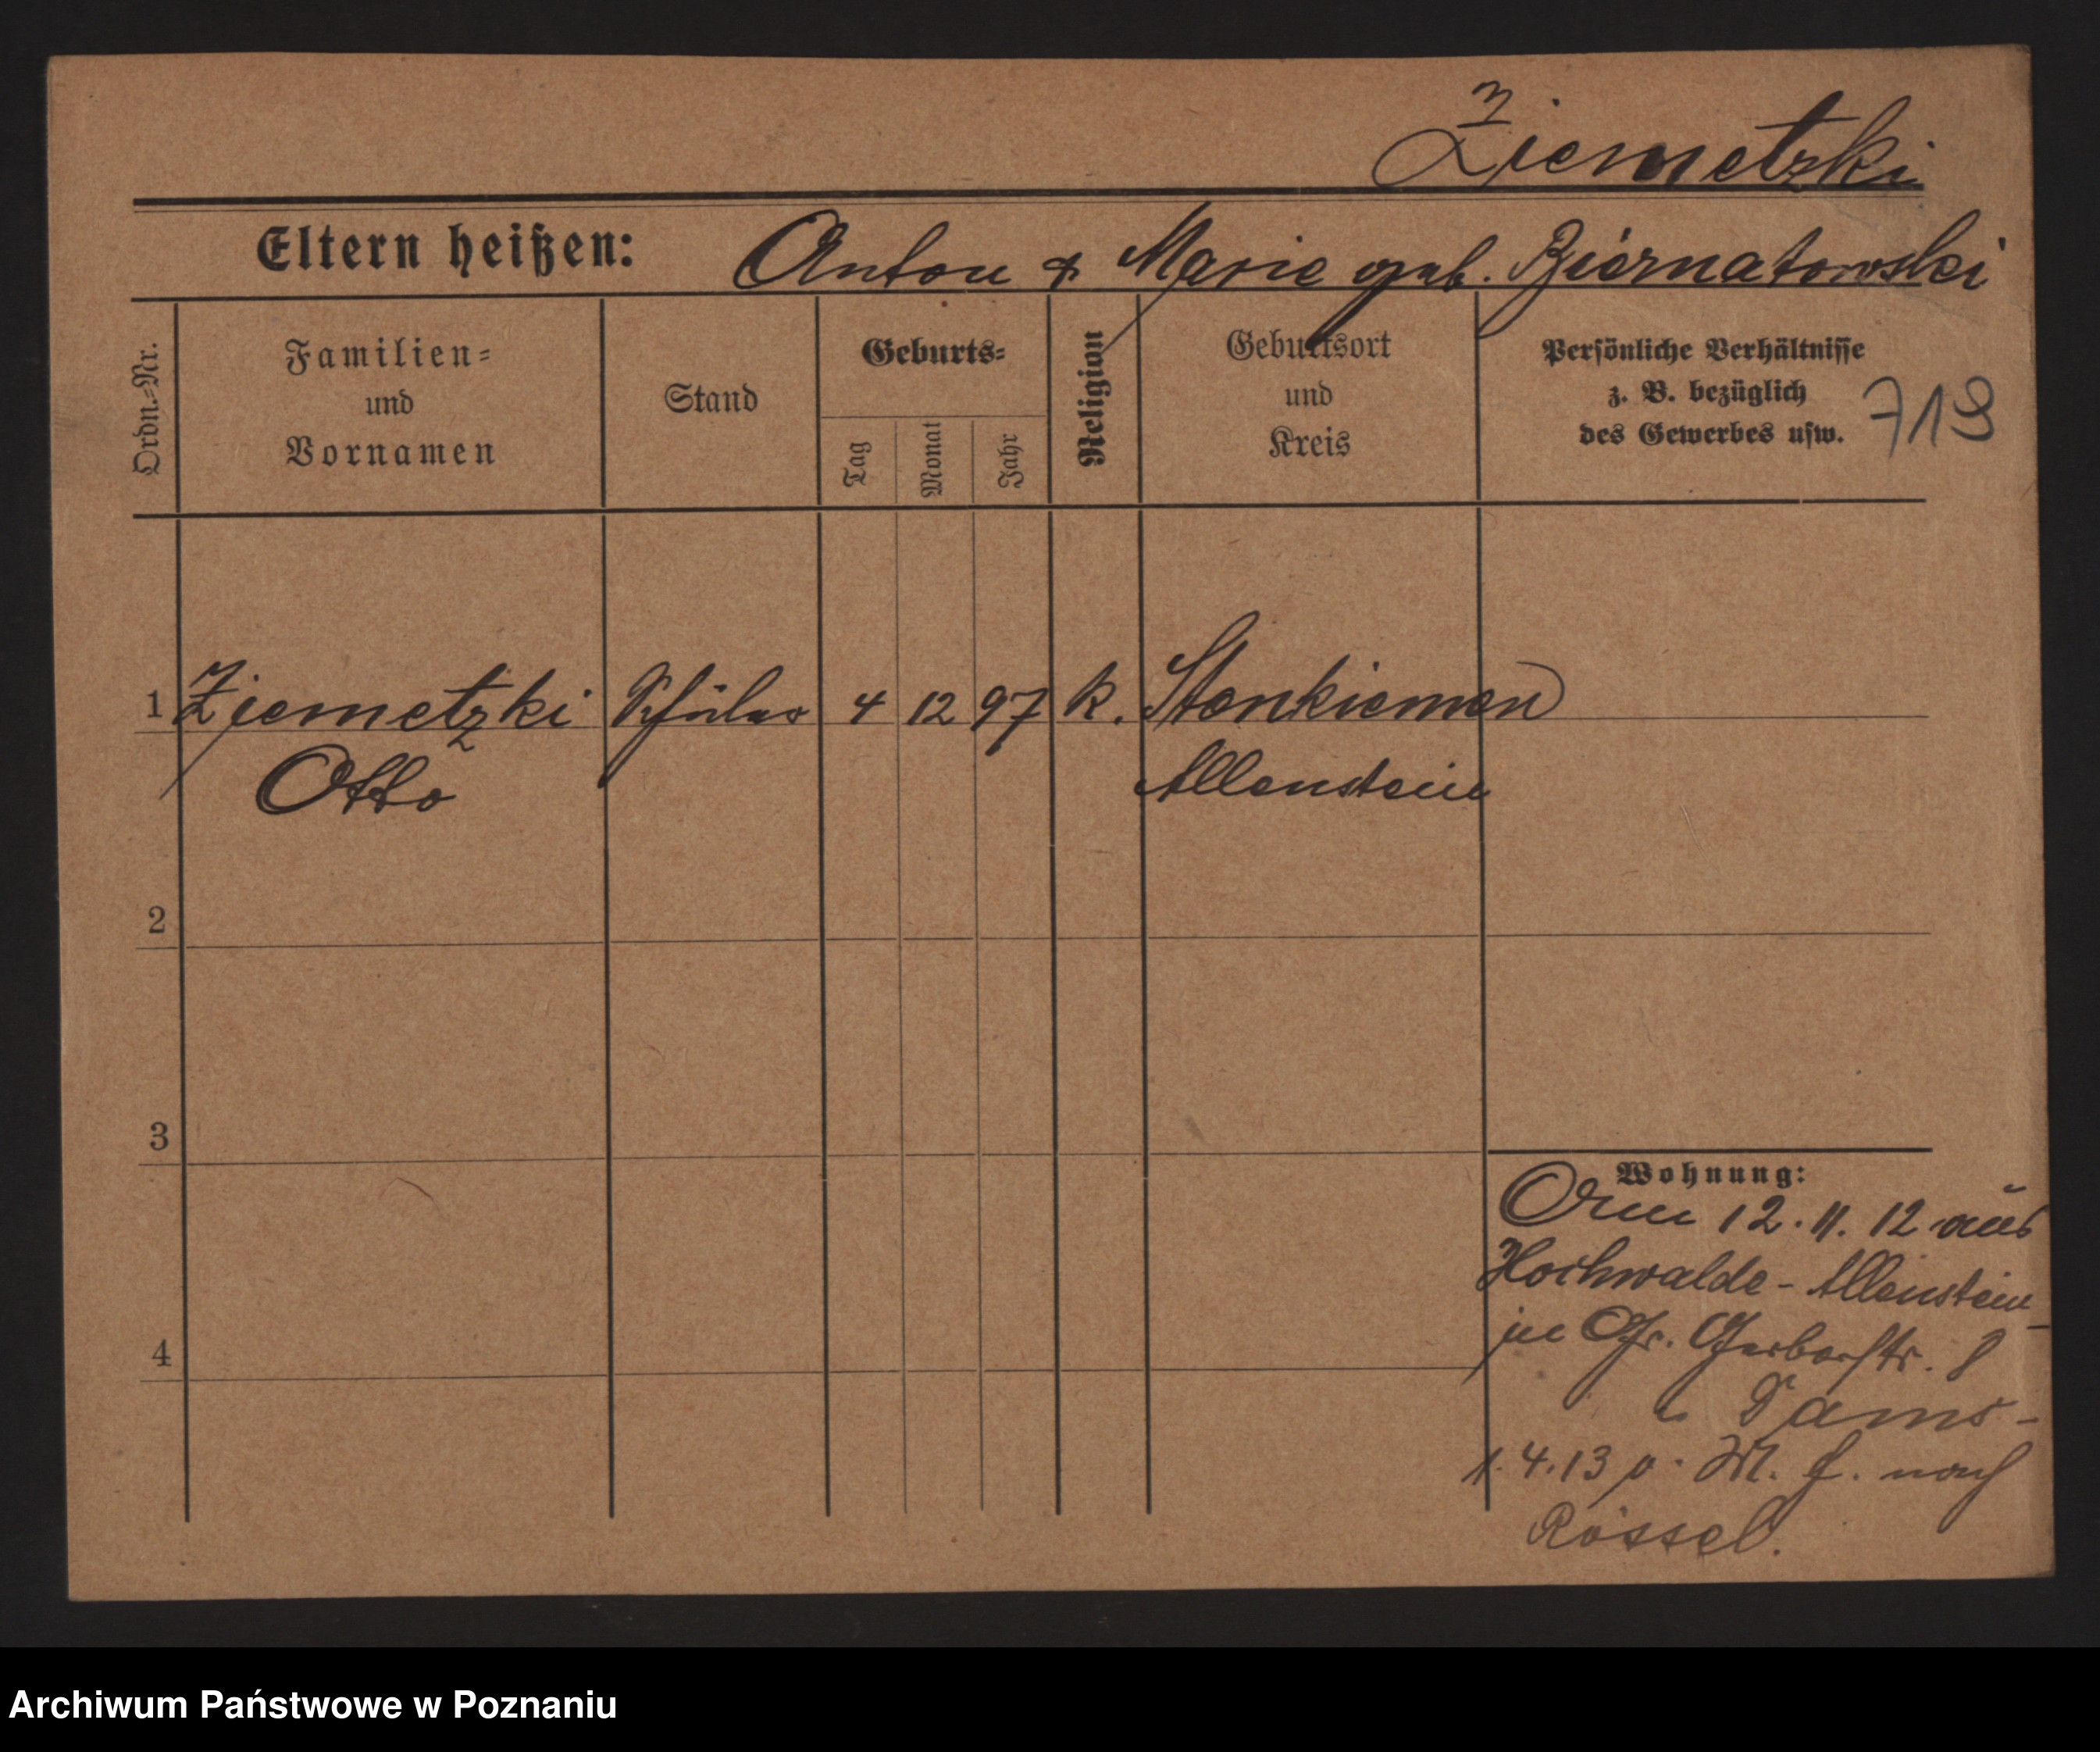 Ziemetzki
Eltern heißen: Anton & Marie geb. Biernatowski
Ordn.=Nr.
Familien=
und
Vornamen
Stand
Geburts=
Tag
Monat
Jahr
Religion
Geburtsort
und
Kreis
Persönliche Verhältnisse
z. B. bezüglich
des Gewerbes usw.
719
1 Ziemetzki Schüler 4 12 97 k. Stenkienen
Otto Allenstein
2
3
4
Wohnung:
12. 11. 12 aus
Hochwalde - Allenstein
in Gr. Gerberstr. 8
1. 4. 13 v. M. f. nach
Rössel.
Archiwum Państwowe w Poznaniu